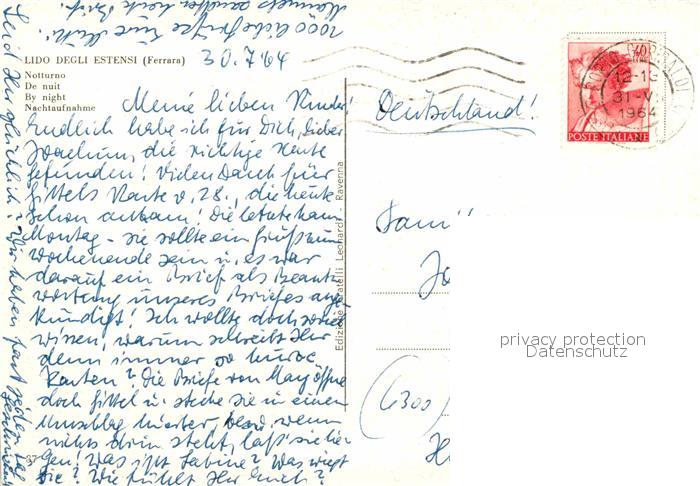 1000 liebe Grüße Eure Mutti.
LIDO DEGLI ESTENSI (Ferrara)
30.7.64
Notturno
De nuit
By night
Nachtaufnahme
Meine lieben Kinder!
Endlich habe ich für Dich, lieber
Joachim, die richtige Karte
gefunden! Vielen Dank für
Gittels Karte v. 28., die heute
schon ankam! Die letzte kam
Montag - sie sollte ein Gruß zum
Wochenende sein u. es war
darauf ein Brief als Beant-
wortung unseres Briefes ange-
kündigt! Ich wollte doch
wissen, warum schreibt Ihr
denn immer so kurze
Karten? Die Briefe von May öffne
doch Gittel u. stecke sie in einen
Umschlag hierher, wenn
nichts drin steht, laß' sie lie-
gen! Was ißt Sabine? Was wiegt
sie? Wie fühlt Ihr Euch?
Seid Ihr glücklich? Wir haben fast jeden Tag
Edizione Fratelli Leonardi - Ravenna
87
Deutschland!
Fam
(6300)
H
PORTO GARIBALDI
12-1
31-VII
1964
40
POSTE ITALIANE
privacy protection
Datenschutz